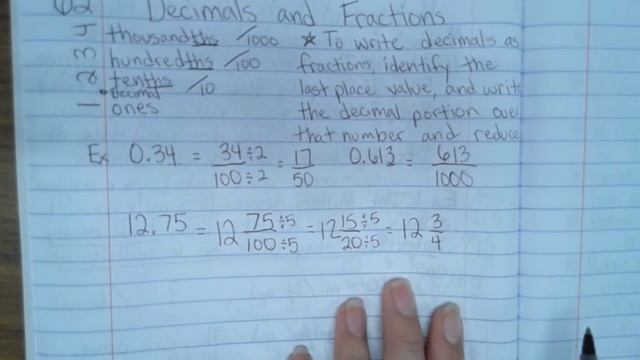 6.2 Decimals and Fractions
5 thousandths /1000 ★ To write decimals as
3 hundredths /100 fractions, identify the
2 tenths /10 last place value, and write
• decimal the decimal portion over
1 ones that number and reduce
Ex 0.34 = 34÷2/100÷2 = 17/50 0.613 = 613/1000
12.75 = 12 75÷5/100÷5 = 12 15÷5/20÷5 = 12 3/4